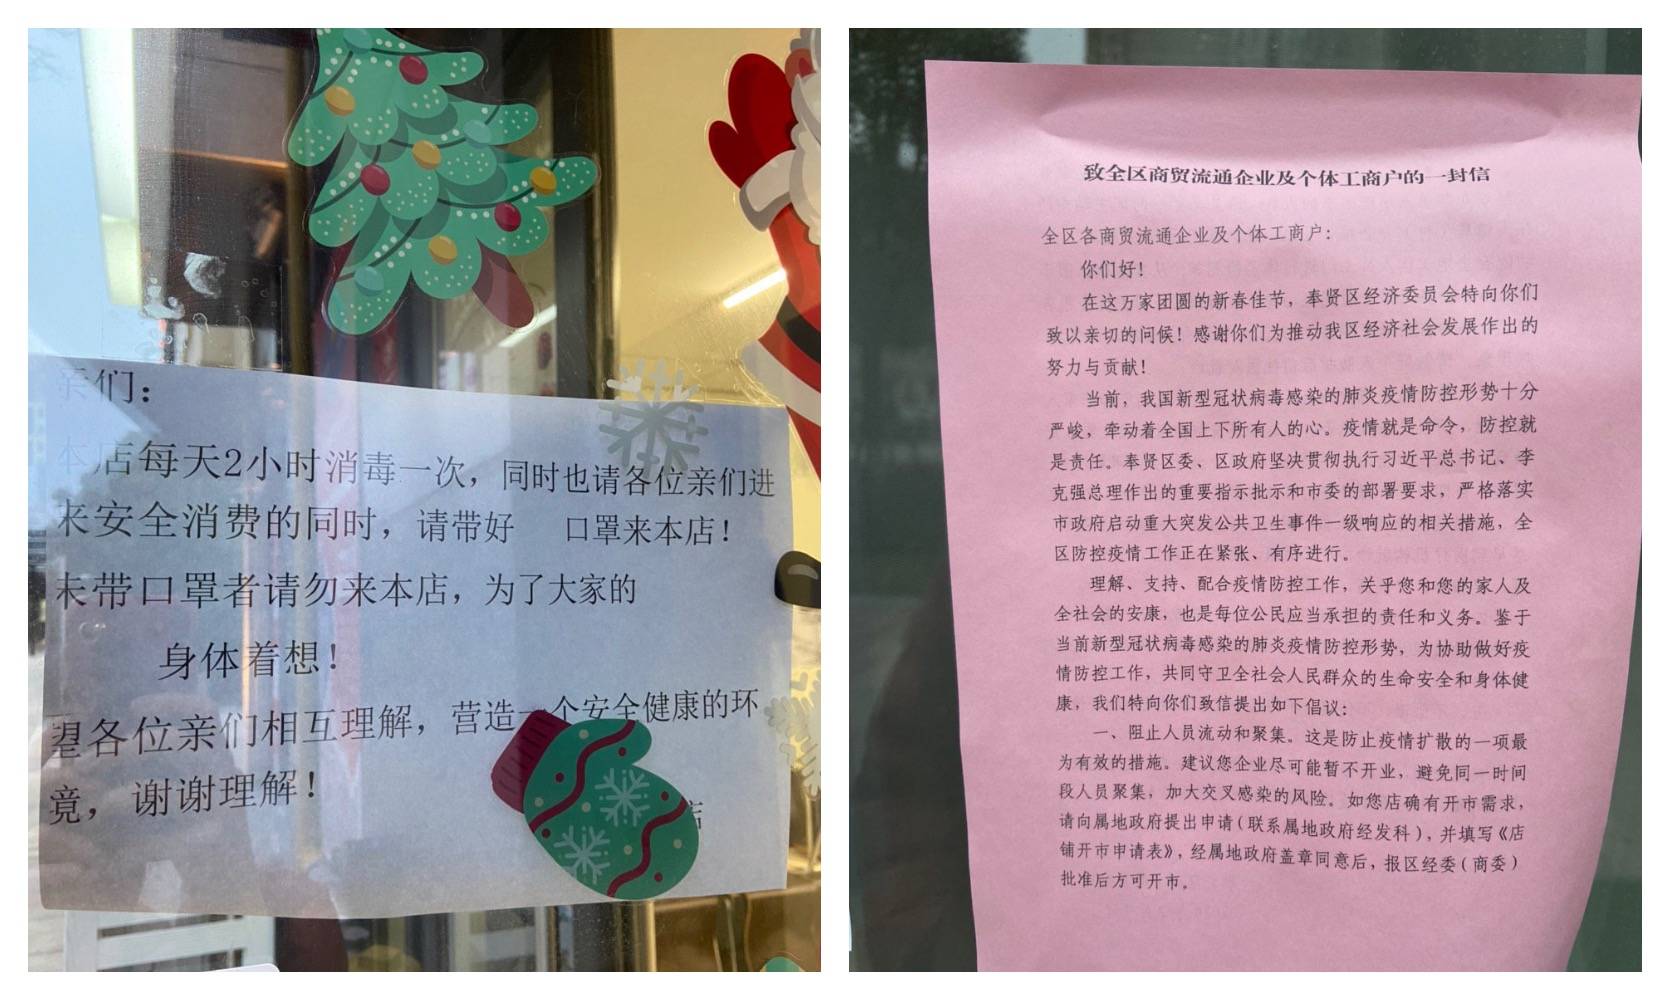 亲们：
本店每天2小时消毒一次，同时也请各位亲们进
来安全消费的同时，请带好 口罩来本店！
未带口罩者请勿来本店，为了大家的
身体着想！
望各位亲们相互理解，营造一个安全健康的环
竟，谢谢理解！
店
致全区商贸流通企业及个体工商户的一封信
全区各商贸流通企业及个体工商户：
你们好！
在这万家团圆的新春佳节，奉贤区经济委员会特向你们
致以亲切的问候！感谢你们为推动我区经济社会发展作出的
努力与贡献！
当前，我国新型冠状病毒感染的肺炎疫情防控形势十分
严峻，牵动着全国上下所有人的心。疫情就是命令，防控就
是责任。奉贤区委、区政府坚决贯彻执行习近平总书记、李
克强总理作出的重要指示批示和市委的部署要求，严格落实
市政府启动重大突发公共卫生事件一级响应的相关措施，全
区防控疫情工作正在紧张、有序进行。
理解、支持、配合疫情防控工作，关乎您和您的家人及
全社会的安康，也是每位公民应当承担的责任和义务。鉴于
当前新型冠状病毒感染的肺炎疫情防控形势，为协助做好疫
情防控工作，共同守卫全社会人民群众的生命安全和身体健
康，我们特向你们致信提出如下倡议：
一、阻止人员流动和聚集。这是防止疫情扩散的一项最
为有效的措施。建议您企业尽可能暂不开业，避免同一时间
段人员聚集，加大交叉感染的风险。如您店确有开市需求，
请向属地政府提出申请（联系属地政府经发科），并填写《店
铺开市申请表》，经属地政府盖章同意后，报区经委（商委）
批准后方可开市。